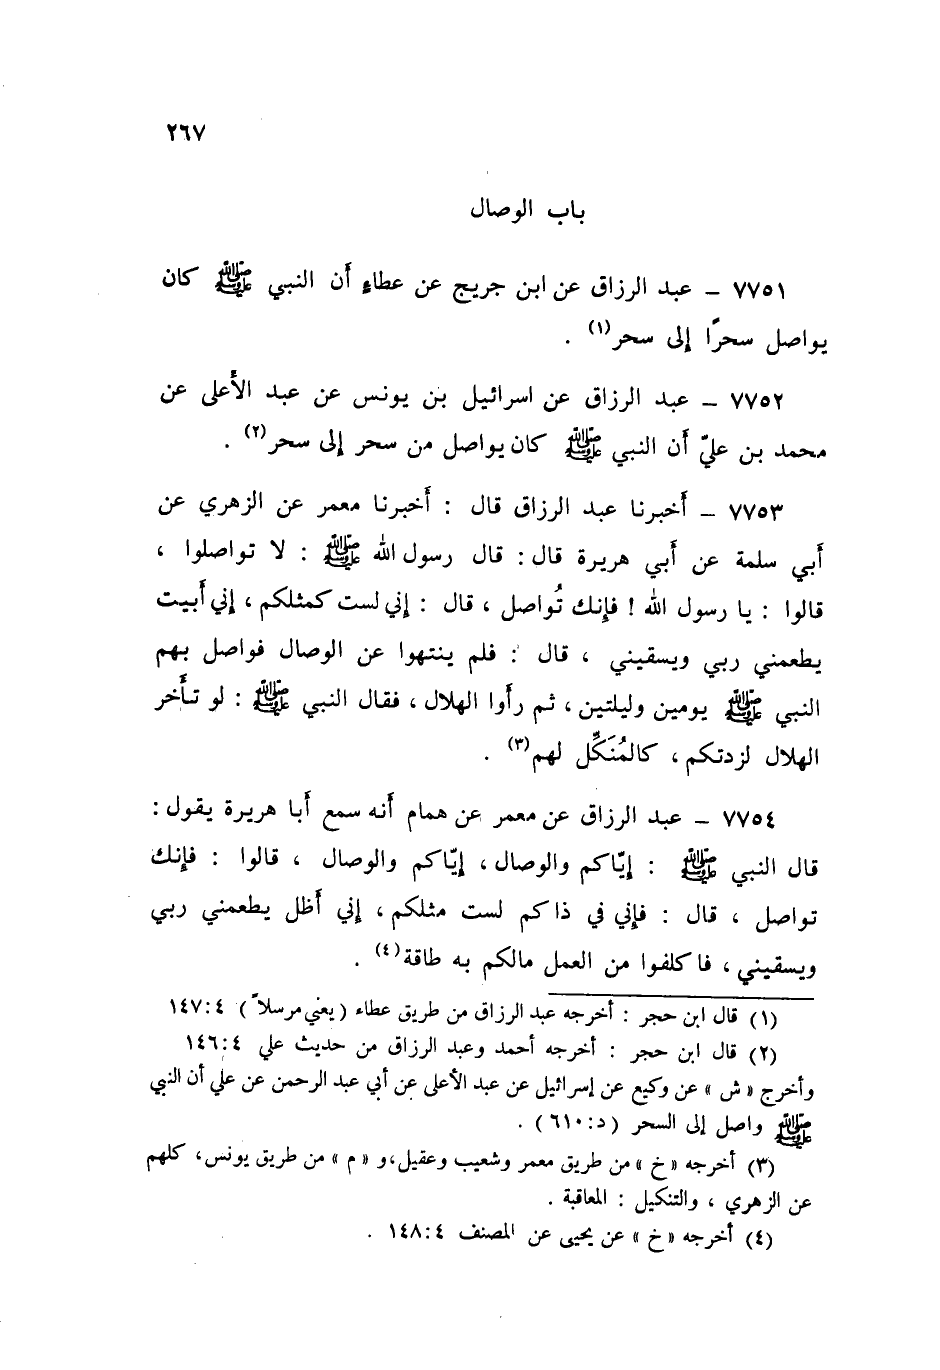 ٢٦٧
باب الوصال
٧٧٥١ ــ عبد الرزاق عن ابن جريج عن عطاءٍ أن النبي ﷺ كان
يواصل سحرًا إلى سحر(١) .
٧٧٥٢ ــ عبد الرزاق عن اسرائيل بن يونس عن عبد الأَعلى عن
محمد بن عليّ أن النبي ﷺ كان يواصل من سحر إلى سحر(٢) .
٧٧٥٣ ــ أخبرنا عبد الرزاق قال : أخبرنا معمر عن الزهري عن
أبي سلمة عن أبي هريرة قال : قال رسول الله ﷺ : لا تواصلوا ،
قالوا : يا رسول الله ! فإنك تُواصل ، قال : إني لست كمثلكم ، إني أبيت
يطعمني ربي ويسقيني ، قال : فلم ينتهوا عن الوصال فواصل بهم
النبي ﷺ يومين وليلتين ، ثم رأوا الهلال ، فقال النبي ﷺ : لو تأَخر
الهلال لزدتكم ، كالمُنَكِّل لهم(٣) .
٧٧٥٤ ــ عبد الرزاق عن معمر عن همام أنه سمع أبا هريرة يقول :
قال النبي ﷺ : إيّاكم والوصال ، إيّاكم والوصال ، قالوا : فإنك
تواصل ، قال : فإني في ذاكم لست مثلكم ، إني أظل يطعمني ربي
ويسقيني ، فاكلفوا من العمل مالكم به طاقة(٤) .
(١) قال ابن حجر : أخرجه عبد الرزاق من طريق عطاء (يعني مرسلاً) ٤:١٤٧
(٢) قال ابن حجر : أخرجه أحمد وعبد الرزاق من حديث علي ٤:١٤٦
وأخرج «ش» عن وكيع عن إسرائيل عن عبد الأعلى عن أبي عبد الرحمن عن علي أن النبي
ﷺ واصل إلى السحر (د:٦١٠) .
(٣) أخرجه «خ» من طريق معمر وشعيب وعقيل،و «م» من طريق يونس، كلهم
عن الزهري ، والتنكيل : المعاقبة .
(٤) أخرجه «خ» عن يحيى عن المصنف ٤:١٤٨ .